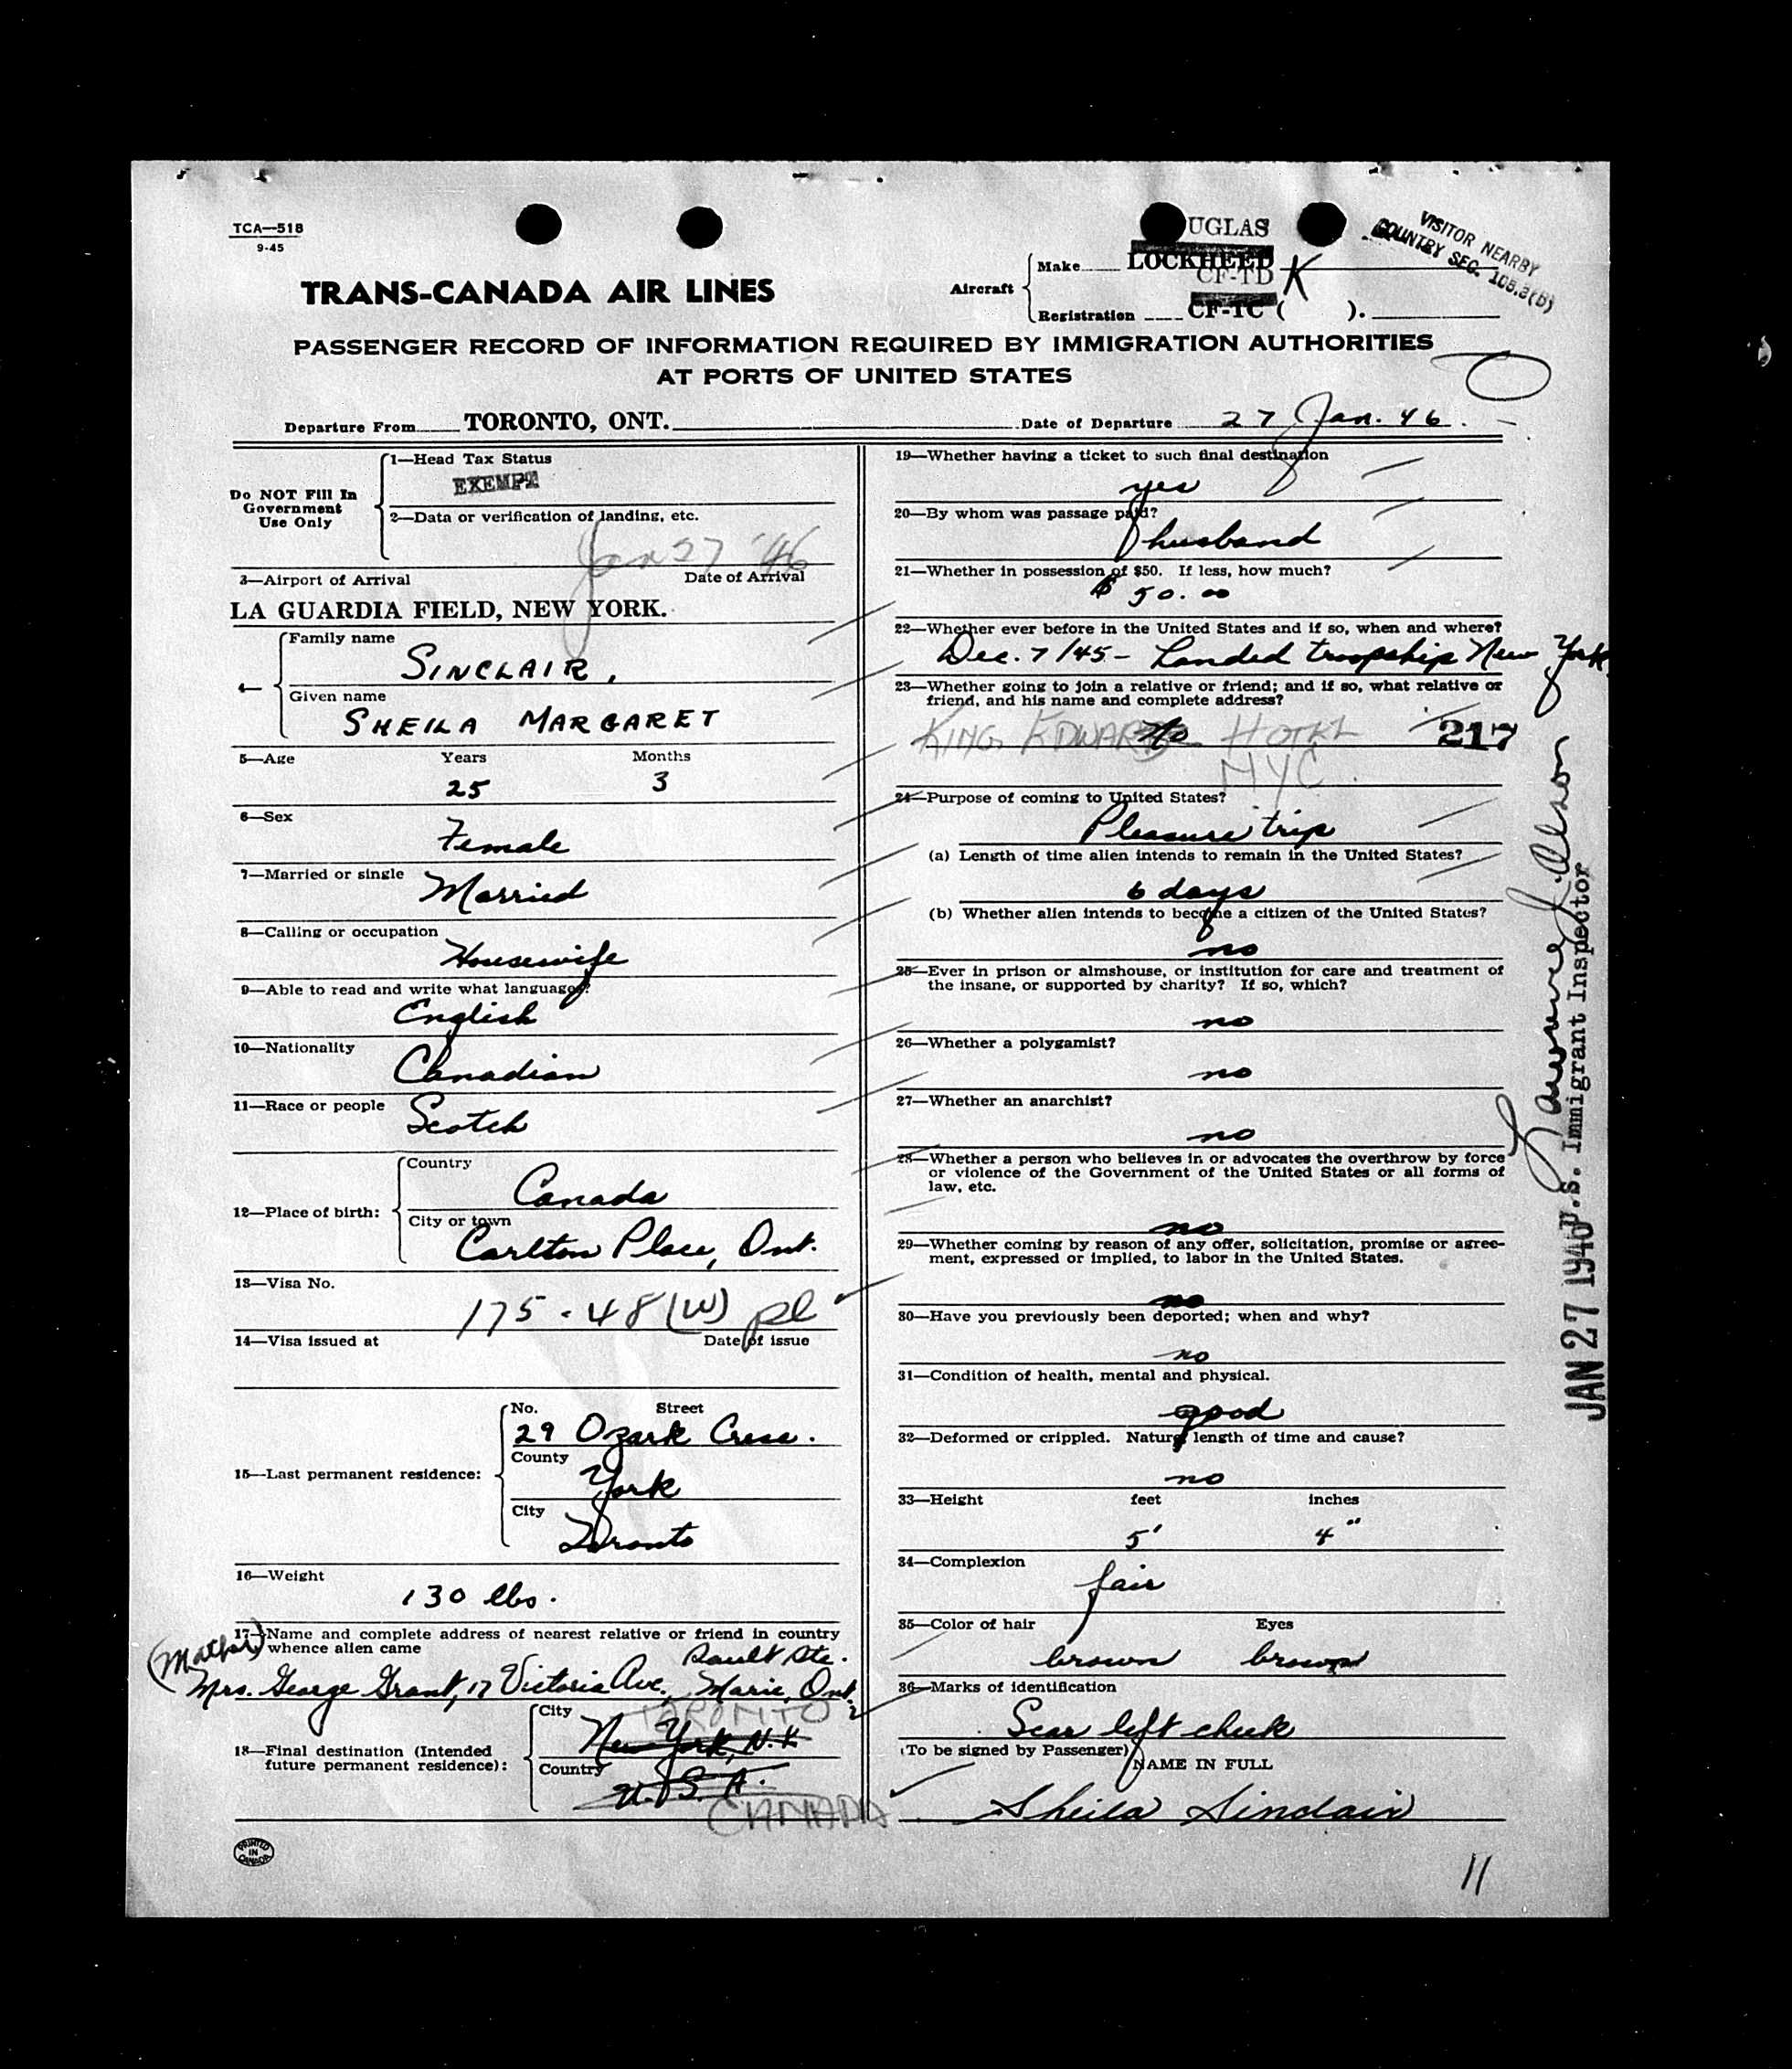 TCA—518
9-45
UGLAS
VISITOR NEARBY
COUNTRY SEC.
TRANS-CANADA AIR LINES
Aircraft
Make LOCKHEED
CF-TD K
Registration CF-TC ( ).
PASSENGER RECORD OF INFORMATION REQUIRED BY IMMIGRATION AUTHORITIES
AT PORTS OF UNITED STATES
Departure From TORONTO, ONT. Date of Departure 27 Jan. 46.
Do NOT Fill In
Government
Use Only
1—Head Tax Status
EXEMPT
2—Data or verification of landing, etc.
Jan 27 '46
3—Airport of Arrival Date of Arrival
LA GUARDIA FIELD, NEW YORK.
4—
Family name
SINCLAIR,
Given name
SHEILA MARGARET
5—Age Years Months
25 3
6—Sex
Female
7—Married or single
Married
8—Calling or occupation
Housewife
9—Able to read and write what language?
English
10—Nationality
Canadian
11—Race or people
Scotch
12—Place of birth:
Country
Canada
City or town
Carlton Place, Ont.
13—Visa No.
175-48(W) pl
14—Visa issued at Date of issue
15—Last permanent residence:
No. Street
29 Ozark Cresc.
County
York
City
Toronto
16—Weight
130 lbs.
17—Name and complete address of nearest relative or friend in country
whence alien came
(Mother)
Sault Ste.
Mrs. George Grant, 17 Victoria Ave., Marie, Ont.
18—Final destination (Intended
future permanent residence):
City
TORONTO
New York, N.Y.
Country
U.S.A.
CANADA
PRINTED
IN
CANADA
19—Whether having a ticket to such final destination
yes
20—By whom was passage paid?
husband
21—Whether in possession of $50. If less, how much?
$50.00
22—Whether ever before in the United States and if so, when and where?
Dec. 7/45 - Landed troopship New York
23—Whether going to join a relative or friend; and if so, what relative or
friend, and his name and complete address?
No
KING EDWARD HOTEL
217
NYC
24—Purpose of coming to United States?
Pleasure trip
(a) Length of time alien intends to remain in the United States?
6 days
(b) Whether alien intends to become a citizen of the United States?
no
25—Ever in prison or almshouse, or institution for care and treatment of
the insane, or supported by charity? If so, which?
no
26—Whether a polygamist?
no
27—Whether an anarchist?
no
28—Whether a person who believes in or advocates the overthrow by force
or violence of the Government of the United States or all forms of
law, etc.
no
29—Whether coming by reason of any offer, solicitation, promise or agree-
ment, expressed or implied, to labor in the United States.
no
30—Have you previously been deported; when and why?
no
31—Condition of health, mental and physical.
good
32—Deformed or crippled. Nature, length of time and cause?
no
33—Height feet inches
5' 4"
34—Complexion
fair
35—Color of hair Eyes
brown brown
36—Marks of identification
Scar left cheek
(To be signed by Passenger)
NAME IN FULL
Sheila Sinclair
11
U.S. Immigrant Inspector
JAN 27 1946